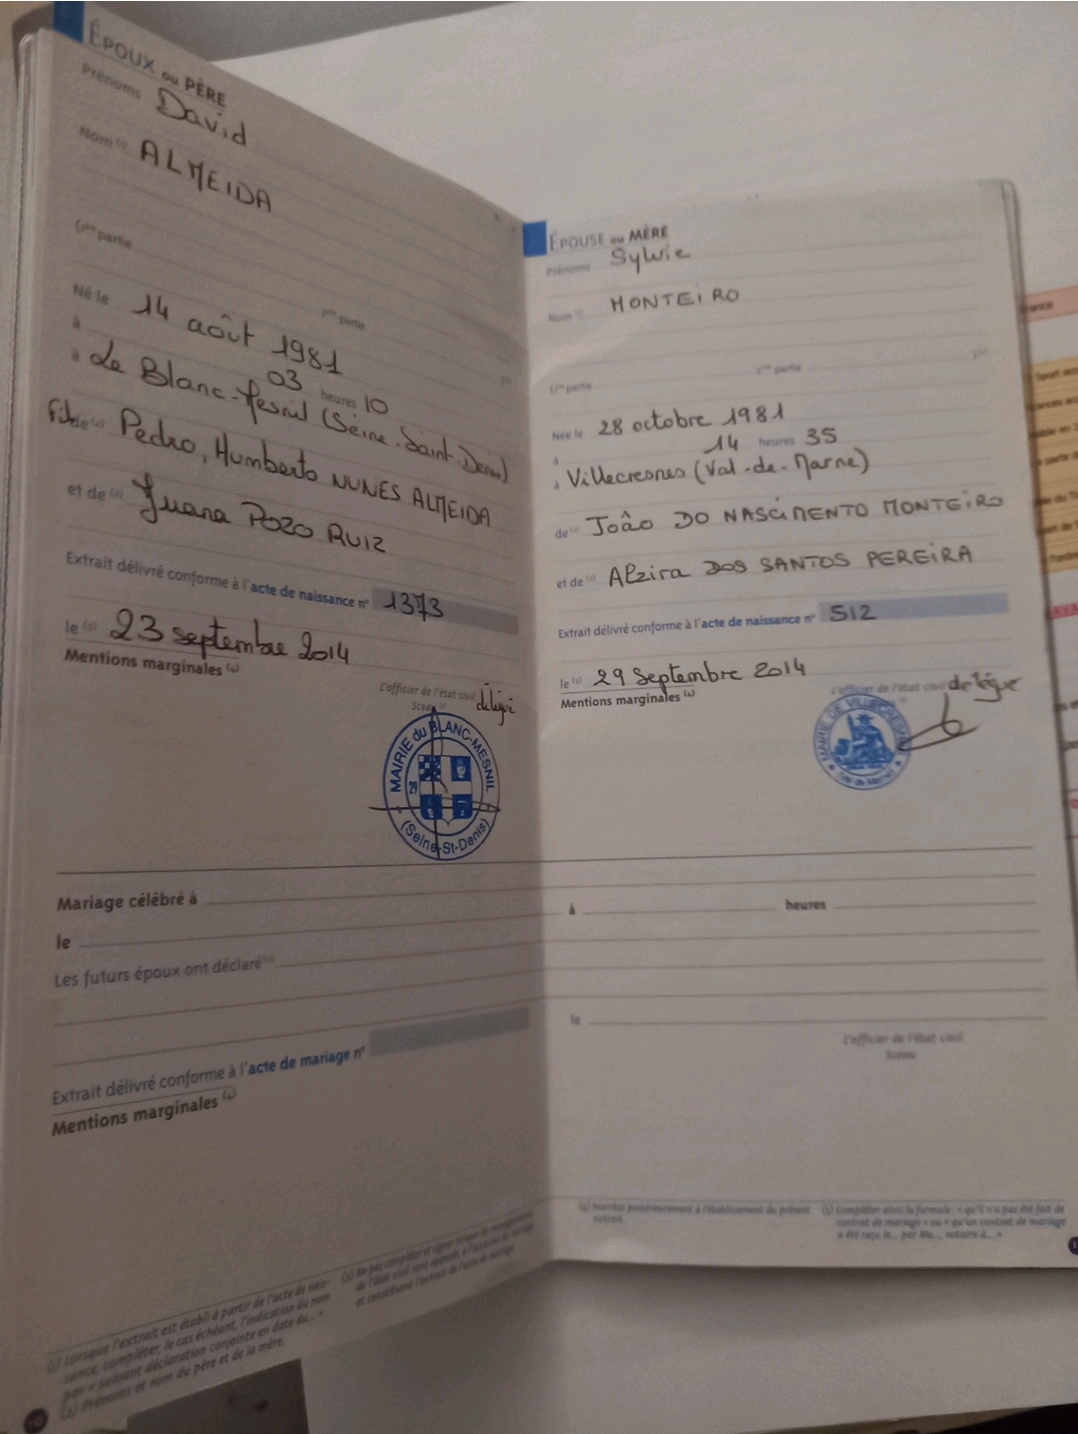 ÉPOUX ou PÈRE
Prénoms David
Nom (1) ALMEIDA
(1ère partie 2ème partie )(1)
Né le 14 août 1981
à 03 heures 10
à Le Blanc-Mesnil (Seine-Saint-Denis)
Fils de (2) Pedro, Humberto NUNES ALMEIDA
et de (2) Juana POZO RUIZ
Extrait délivré conforme à l'acte de naissance n° 1373
le (3) 23 septembre 2014
Mentions marginales (4)
L'officier de l'état civil délégué
Sceau
MAIRIE du BLANC-MESNIL
29
(Seine-St-Denis)
ÉPOUSE ou MÈRE
Prénoms Sylvie
Nom (1) MONTEIRO
(1ère partie 2ème partie )(1)
Née le 28 octobre 1981
à 14 heures 35
à Villecresnes (Val-de-Marne)
de (2) João DO NASCIMENTO MONTEIRO
et de (2) Alzira DOS SANTOS PEREIRA
Extrait délivré conforme à l'acte de naissance n° 512
le (3) 29 Septembre 2014
Mentions marginales (4)
L'officier de l'état civil delégué
MAIRIE DE VILLECRESNES
(Val de Marne)
Mariage célébré à
à heures
le
Les futurs époux ont déclaré (5)
le
L'officier de l'état civil
Sceau
Extrait délivré conforme à l'acte de mariage n°
Mentions marginales (4)
(1) Lorsque l'extrait est établi à partir de l'acte de nais-
sance, compléter, le cas échéant, l'indication du nom
par « suivant déclaration conjointe en date du... »
(2) Prénoms et nom du père et de la mère.
(3) Ne pas compléter et signer lorsque les renseignements
de l'état civil sont apposés à l'occasion du mariage
et constituent l'extrait de l'acte de mariage.
(4) Inscrites postérieurement à l'établissement du présent
extrait.
(5) Compléter ainsi la formule : « qu'il n'a pas été fait de
contrat de mariage » ou « qu'un contrat de mariage
a été reçu le... par Me..., notaire à... »
10